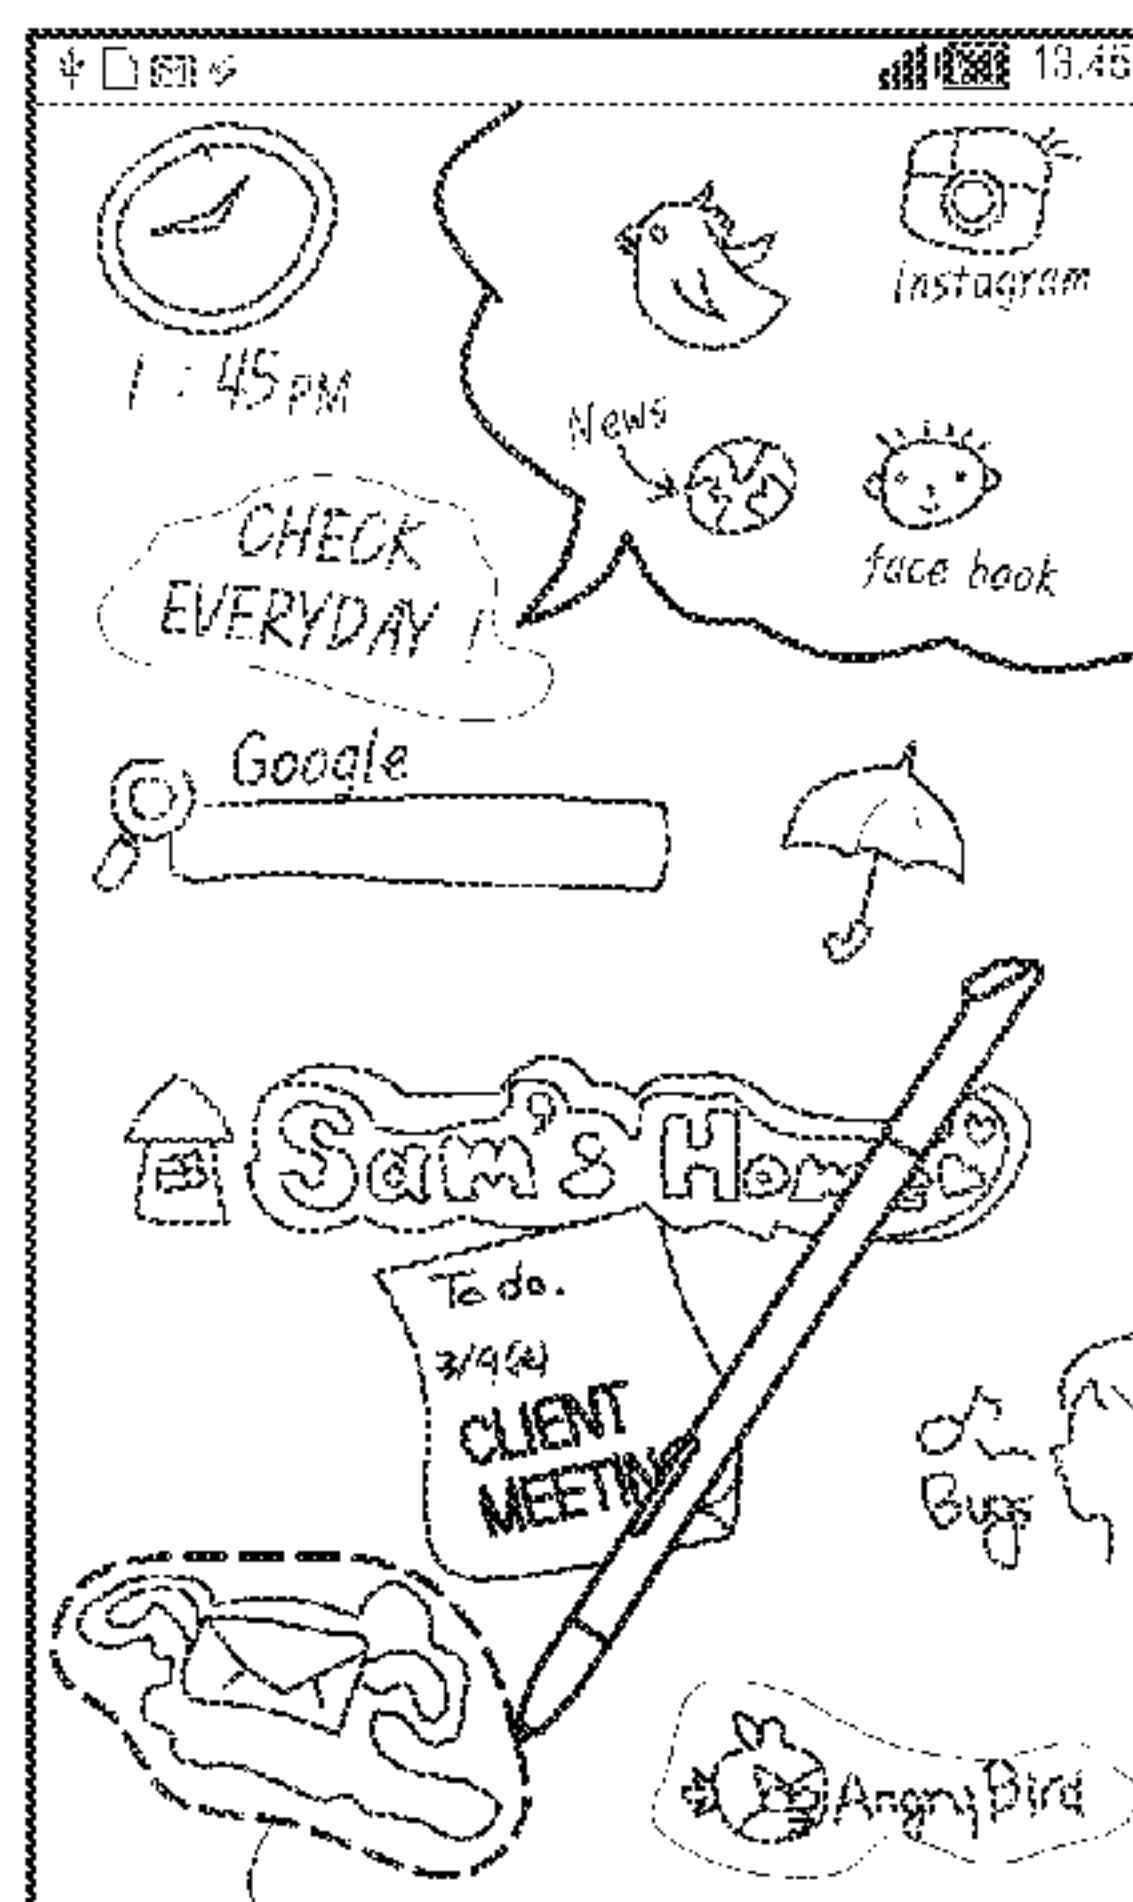 13:45
Instagram
1 : 45 PM
News
face book
CHECK
EVERYDAY !
Google
Sam's Home
To do.
CLIENT
MEETING
Bugs
Angry Bird